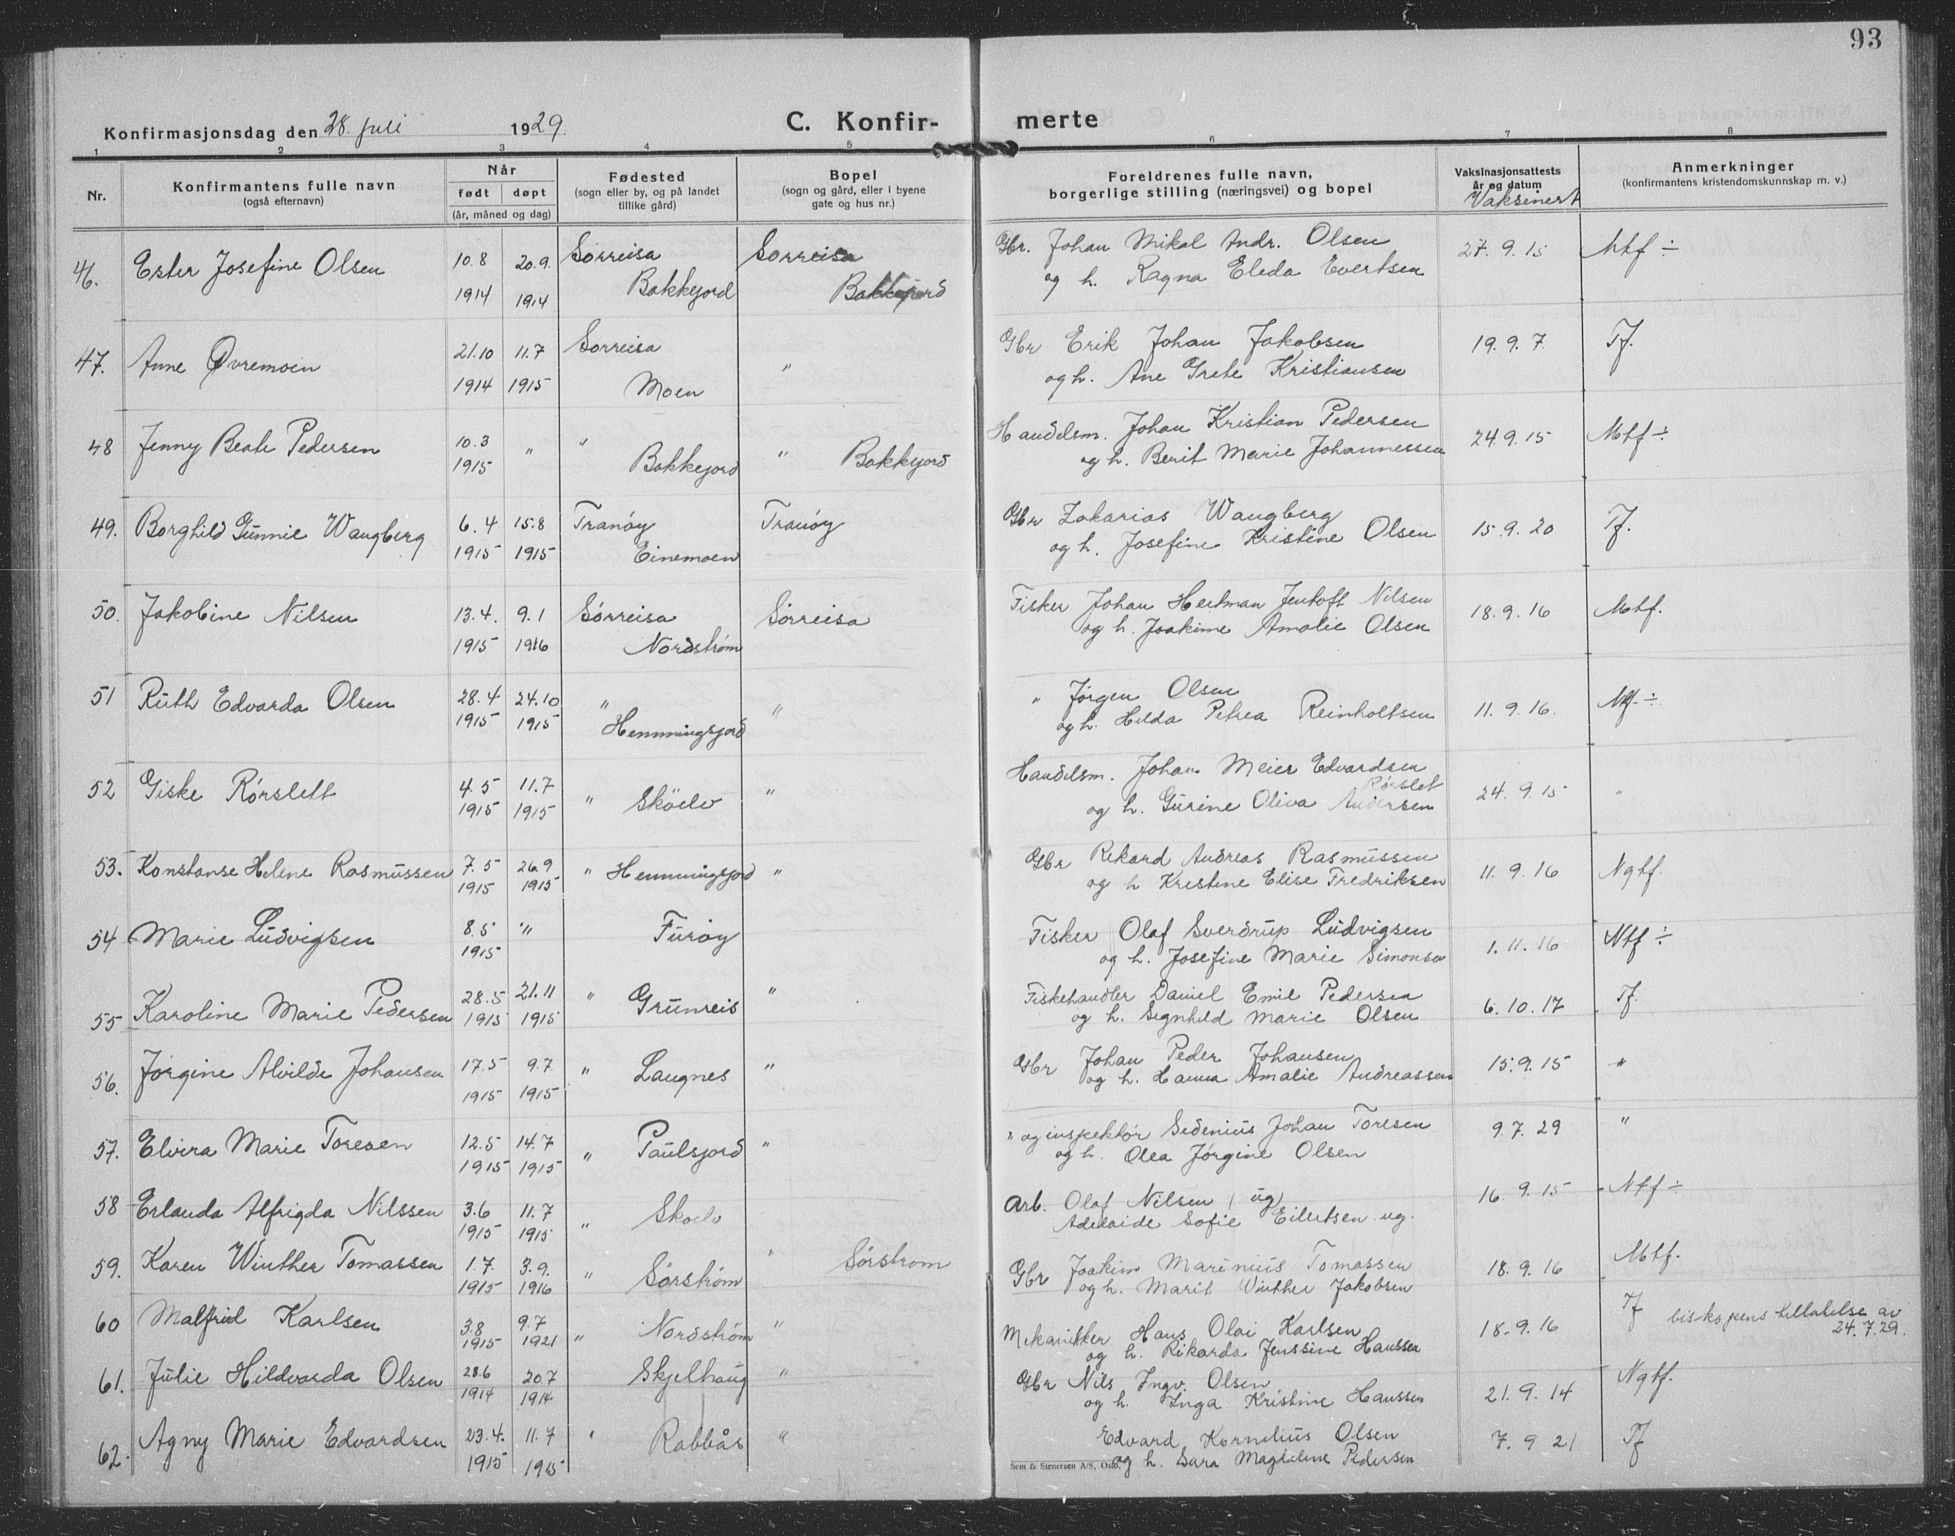 93
Konfirmasjonsdag den 28. juli 1929.
C. Konfir- merte
1 2 3 4 5 6 7 8
Nr.
Konfirmantens fulle navn
(også efternavn)
Når
født døpt
(år, måned og dag)
Fødested
(sogn eller by, og på landet
tillike gård)
Bopel
(sogn og gård, eller i byene
gate og hus nr.)
Foreldrenes fulle navn,
borgerlige stilling (næringsvei) og bopel
Vaksinasjonsattests
år og datum
Vaksinert
Anmerkninger
(konfirmantens kristendomskunnskap m. v.)
46. Ester Josefine Olsen 10.8 1914 20.9. 1914 Sørreisa Bakkejord Sørreisa Bakkejord
Gbr. Johan Mikal Andr. Olsen
og h. Ragna Eleda Evertsen 27.9.15 Mtf ÷
47. Anne Øvremoen 21.10 1914 11.7 1915 Sørreisa Moen "
Gbr Erik Johan Jakobsen
og h. Ane Grete Kristiansen 19.9.7. Tf.
48 Jenny Beate Pedersen 10.3 1915 " " Bakkejord " Bakkejord
Handelsm. Johan Kristian Pedersen
og h. Berit Marie Johannessen 24.9.15 Mtf ÷
49. Borghild Gunnie Wangberg 6.4 1915 15.8 1915 Tranøy Einemoen Tranøy
Gbr Zakarias Wangberg
og h. Josefine Kristine Olsen 15.9.20 Tf.
50. Jakobine Nilsen 13.4. 1915 9.1 1916 Sørreisa Nordstrøm Sørreisa
Fisker Johan Hertman Jentoft Nilsen
og h. Joakime Amalie Olsen 18.9.16 Mtf.
51 Ruth Edvarda Olsen 28.4 1915 24.10 1915 " Hemmingsjord "
" Jørgen Olsen
og h. Hilda Petrea Reinholtsen 11.9.16. Mtf. ÷
52 Giske Rørslett 4.5 1915 11.7 1915 " Skøelv "
Handelsm. Johan Meier Edvardsen
Rørslet
og h. Gurine Oliva Andersen 24.9.15 "
53. Konstanse Helene Rasmussen 7.5 1915 26.9 1915 " Hemmingsjord "
Gbr Rikard Andreas Rasmussen
og h Kristine Elise Fredriksen 11.9.16 Ngtf.
54 Marie Ludvigsen 8.5 1915 " Furøy
Fisker Olaf Sverdrup Ludvigsen
og h. Josefine Marie Simonsen 1.11.16 Ntf ÷
55 Karoline Marie Pedersen 28.5 1915 21.11 1915 " Grunreis "
Fiskehandler Daniel Emil Pedersen
og h. Signhild Marie Olsen 6.10.17 Tf
56. Jørgine Alvilde Johansen 17.5 1915 9.7 1915 " Laugnes "
Gbr Johan Peder Johansen
og h. Hanna Amalie Andreassen 15.9.15 "
57. Elvira Marie Toresen 12.5 1915 14.7 1915 " Paulsjord "
" og inspektør Sedenius Johan Toresen
og h. Olea Jørgine Olsen 9.7.29 "
58 Erlanda Alfrigda Nilssen 3.6 1915 11.7 1915 " Skoelv
Arb. Olaf Nilsen, ug
Adelaide Sofie Eilertsen ug. 16.9.15 Ntf ÷
59. Karen Winther Tomassen 1.7. 1915 3.9. 1916 " Sørstrøm " Sørstrøm
Gbr Joakim Marinius Tomassen
og h. Marit Winther Jakobsen 18.9.16 Mtf.
60 Malfrid Karlsen 3.8 1915 9.7 1921 " Nordstrøm "
Mekanikker Hans Olai Karlsen
og h. Rikarda Jenssine Hanssen 18.9.16 Tf biskopens tillatelse av
24.7.29.
61. Julie Hildvarda Olsen 28.6 1914 20.7 1914 Skjelhaug "
Gbr Nils Ingv. Olsen
og h. Inga Kristine Hanssen 21.9.14 Ngtf.
62. Agny Marie Edvardsen 23.4. 1915 11.7 1915 " Rabbås "
Edvard Kornelius Olsen
og h. Sara Magdelene Pedersen 7.9 21 Tf
Sem & Stenersen A/S, Oslo.